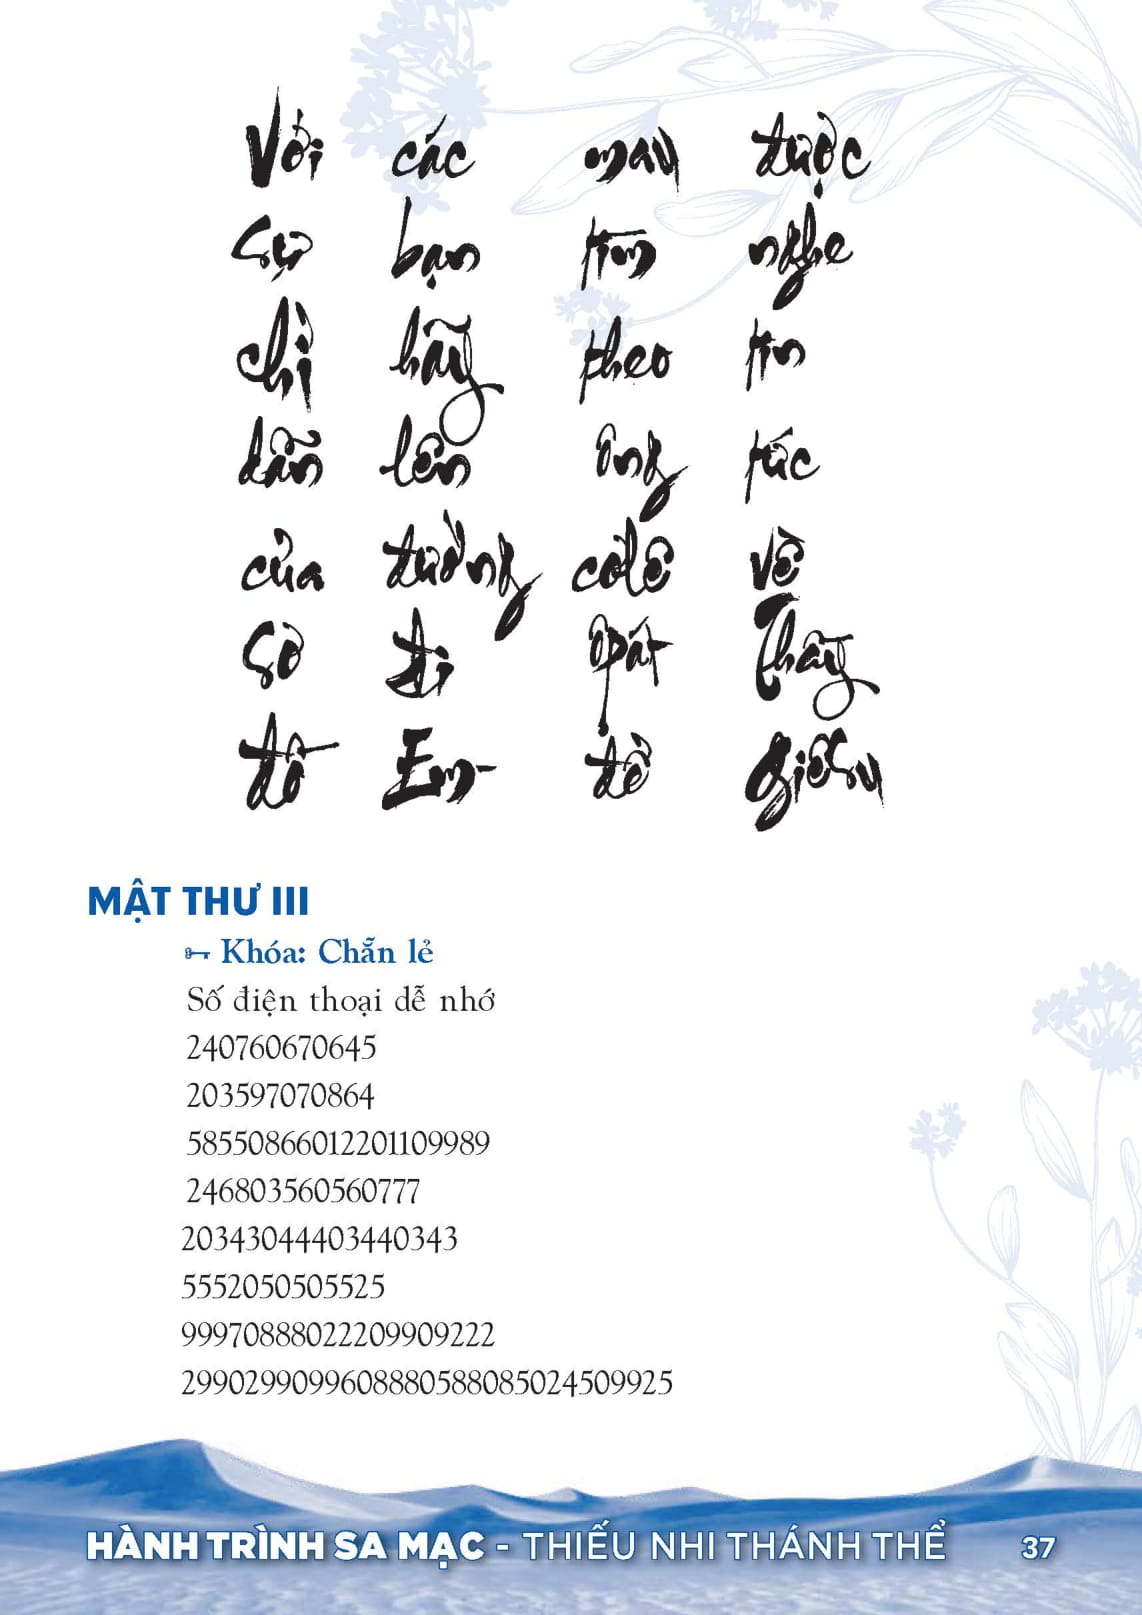 Với các may được
sự bạn tìm nghe
chỉ hãy theo tin
dẫn lên ông tức
của đường cờlê về
sơ đi ôpát Thầy
đồ Em- để Giêsu
MẬT THƯ III
Khóa: Chẵn lẻ
Số điện thoại dễ nhớ
240760670645
203597070864
58550866012201109989
246803560560777
20343044403440343
5552050505525
99970888022209909222
29902990996088805880850245099​25
HÀNH TRÌNH SA MẠC - THIẾU NHI THÁNH THỂ 37